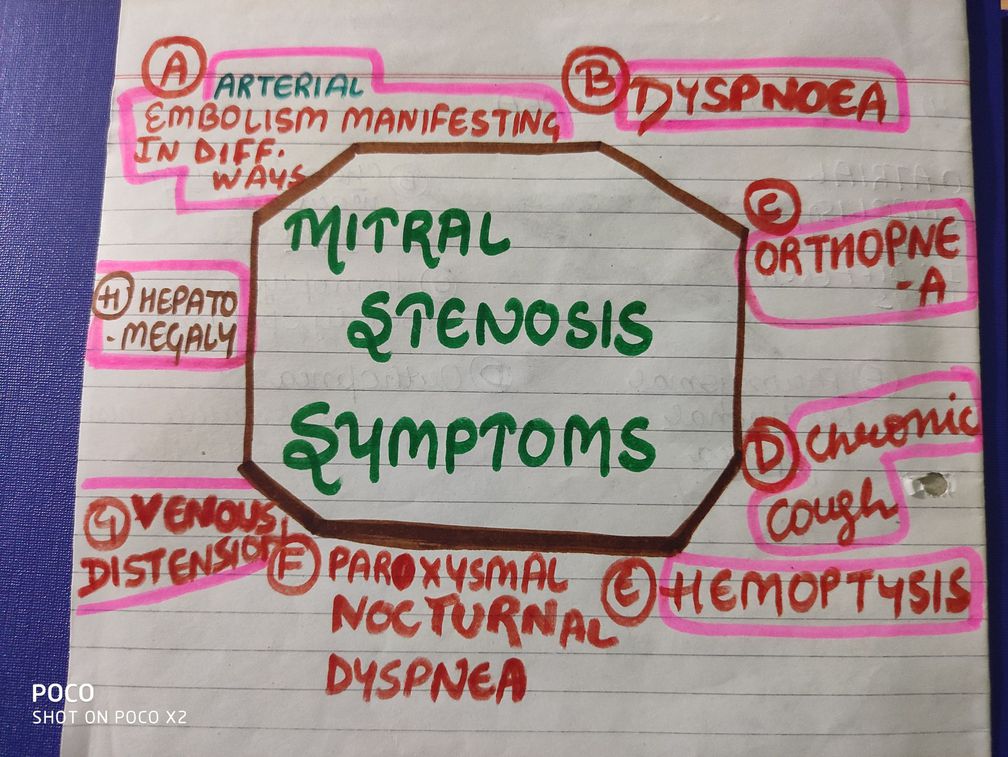 A
ARTERIAL
EMBOLISM MANIFESTING
IN DIFF.
WAYS
B DYSPNOEA
C
ORTHOPNE
-A
D chronic
cough
E HEMOPTYSIS
F PAROXYSMAL
NOCTURNAL
DYSPNEA
G VENOUS
DISTENSION
H HEPATO
-MEGALY
MITRAL
STENOSIS
SYMPTOMS
POCO
SHOT ON POCO X2